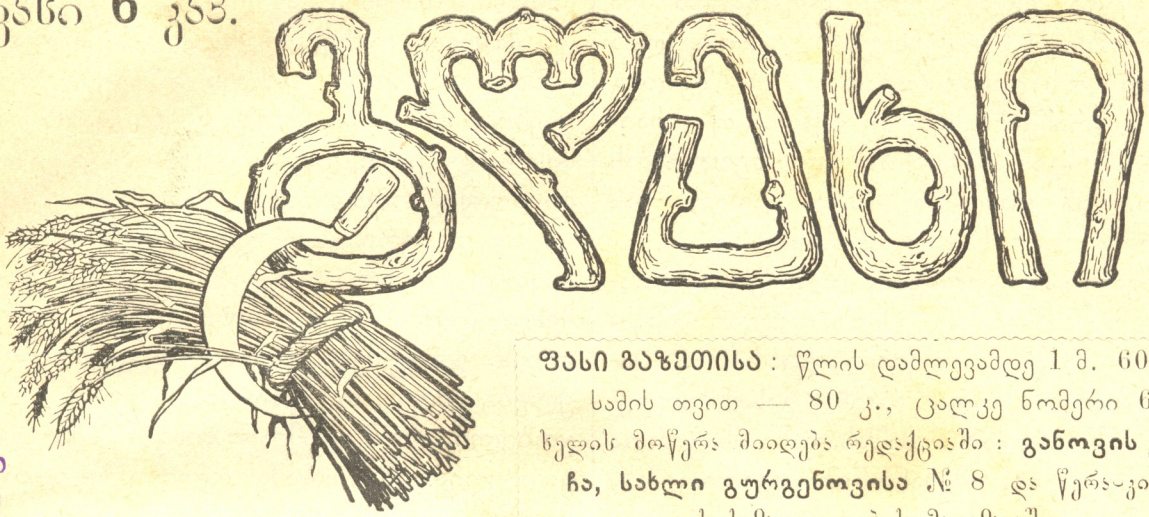 ფასი 6 კაპ.
გლეხი
ფასი გაზეთისა: წლის დამლევამდე 1 მ. 60
სამის თვით — 80 კ., ცალკე ნომერი 6
ხელის მოწერა მიიღება რედაქციაში: განოვის
ჩა, სახლი გურგენოვისა № 8 და წერა-კი